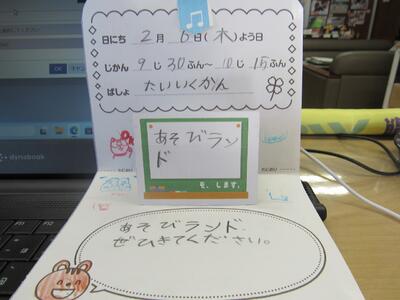 日にち 2月 6日(木)よう日
じかん 9じ30ぷん〜10じ15ふん
ばしょ たいいくかん
あそびラン
ド
を、します。
あそびランド
ぜひきてください。
dynabook